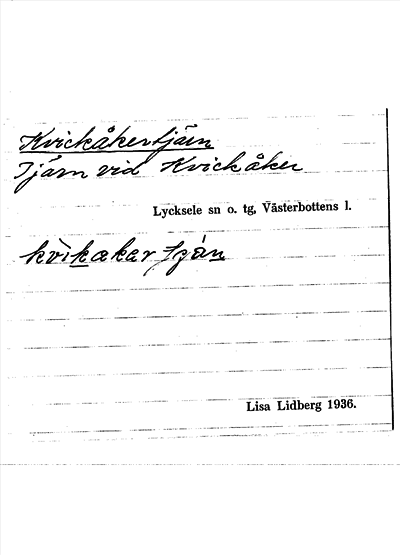 Kvickåkertjärn
Tjärn vid Kvickåker
Lycksele sn o. tg, Västerbottens l.
Lisa Lidberg 1936.